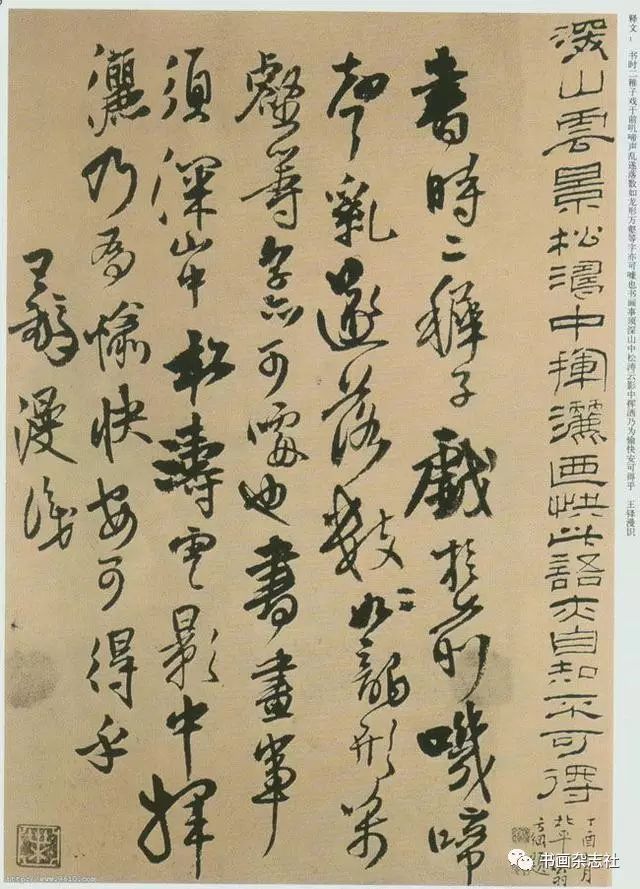 释文： 书时二稚子戏于前叽啼声乱遂落数如龙形万壑等字亦可噱也书画事须深山中松涛云影中挥洒乃为愉快安可得乎 王铎漫识
深山雲景松濤中揮灑画快此語亦自知不可得
丁酉月
北平翁
方綱
書時二稺子戲於前嘰啼
聲亂遂落數如龍形万
壑等字亦可噱也書畫事
須深山中松濤雲影中揮
灑乃為愉快安可得乎
王鐸漫識
书画杂志社
http://www.9610.com